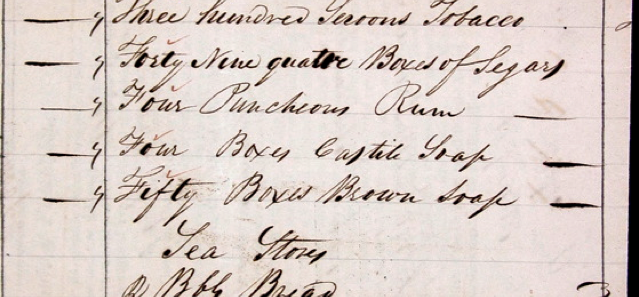 Three hundred Seroons Tobacco
Forty Nine quatre Boxes of Segars
Four Puncheons Rum
Four Boxes Castile Soap
Fifty Boxes Brown Soap
Sea Stores
Bbls Bread